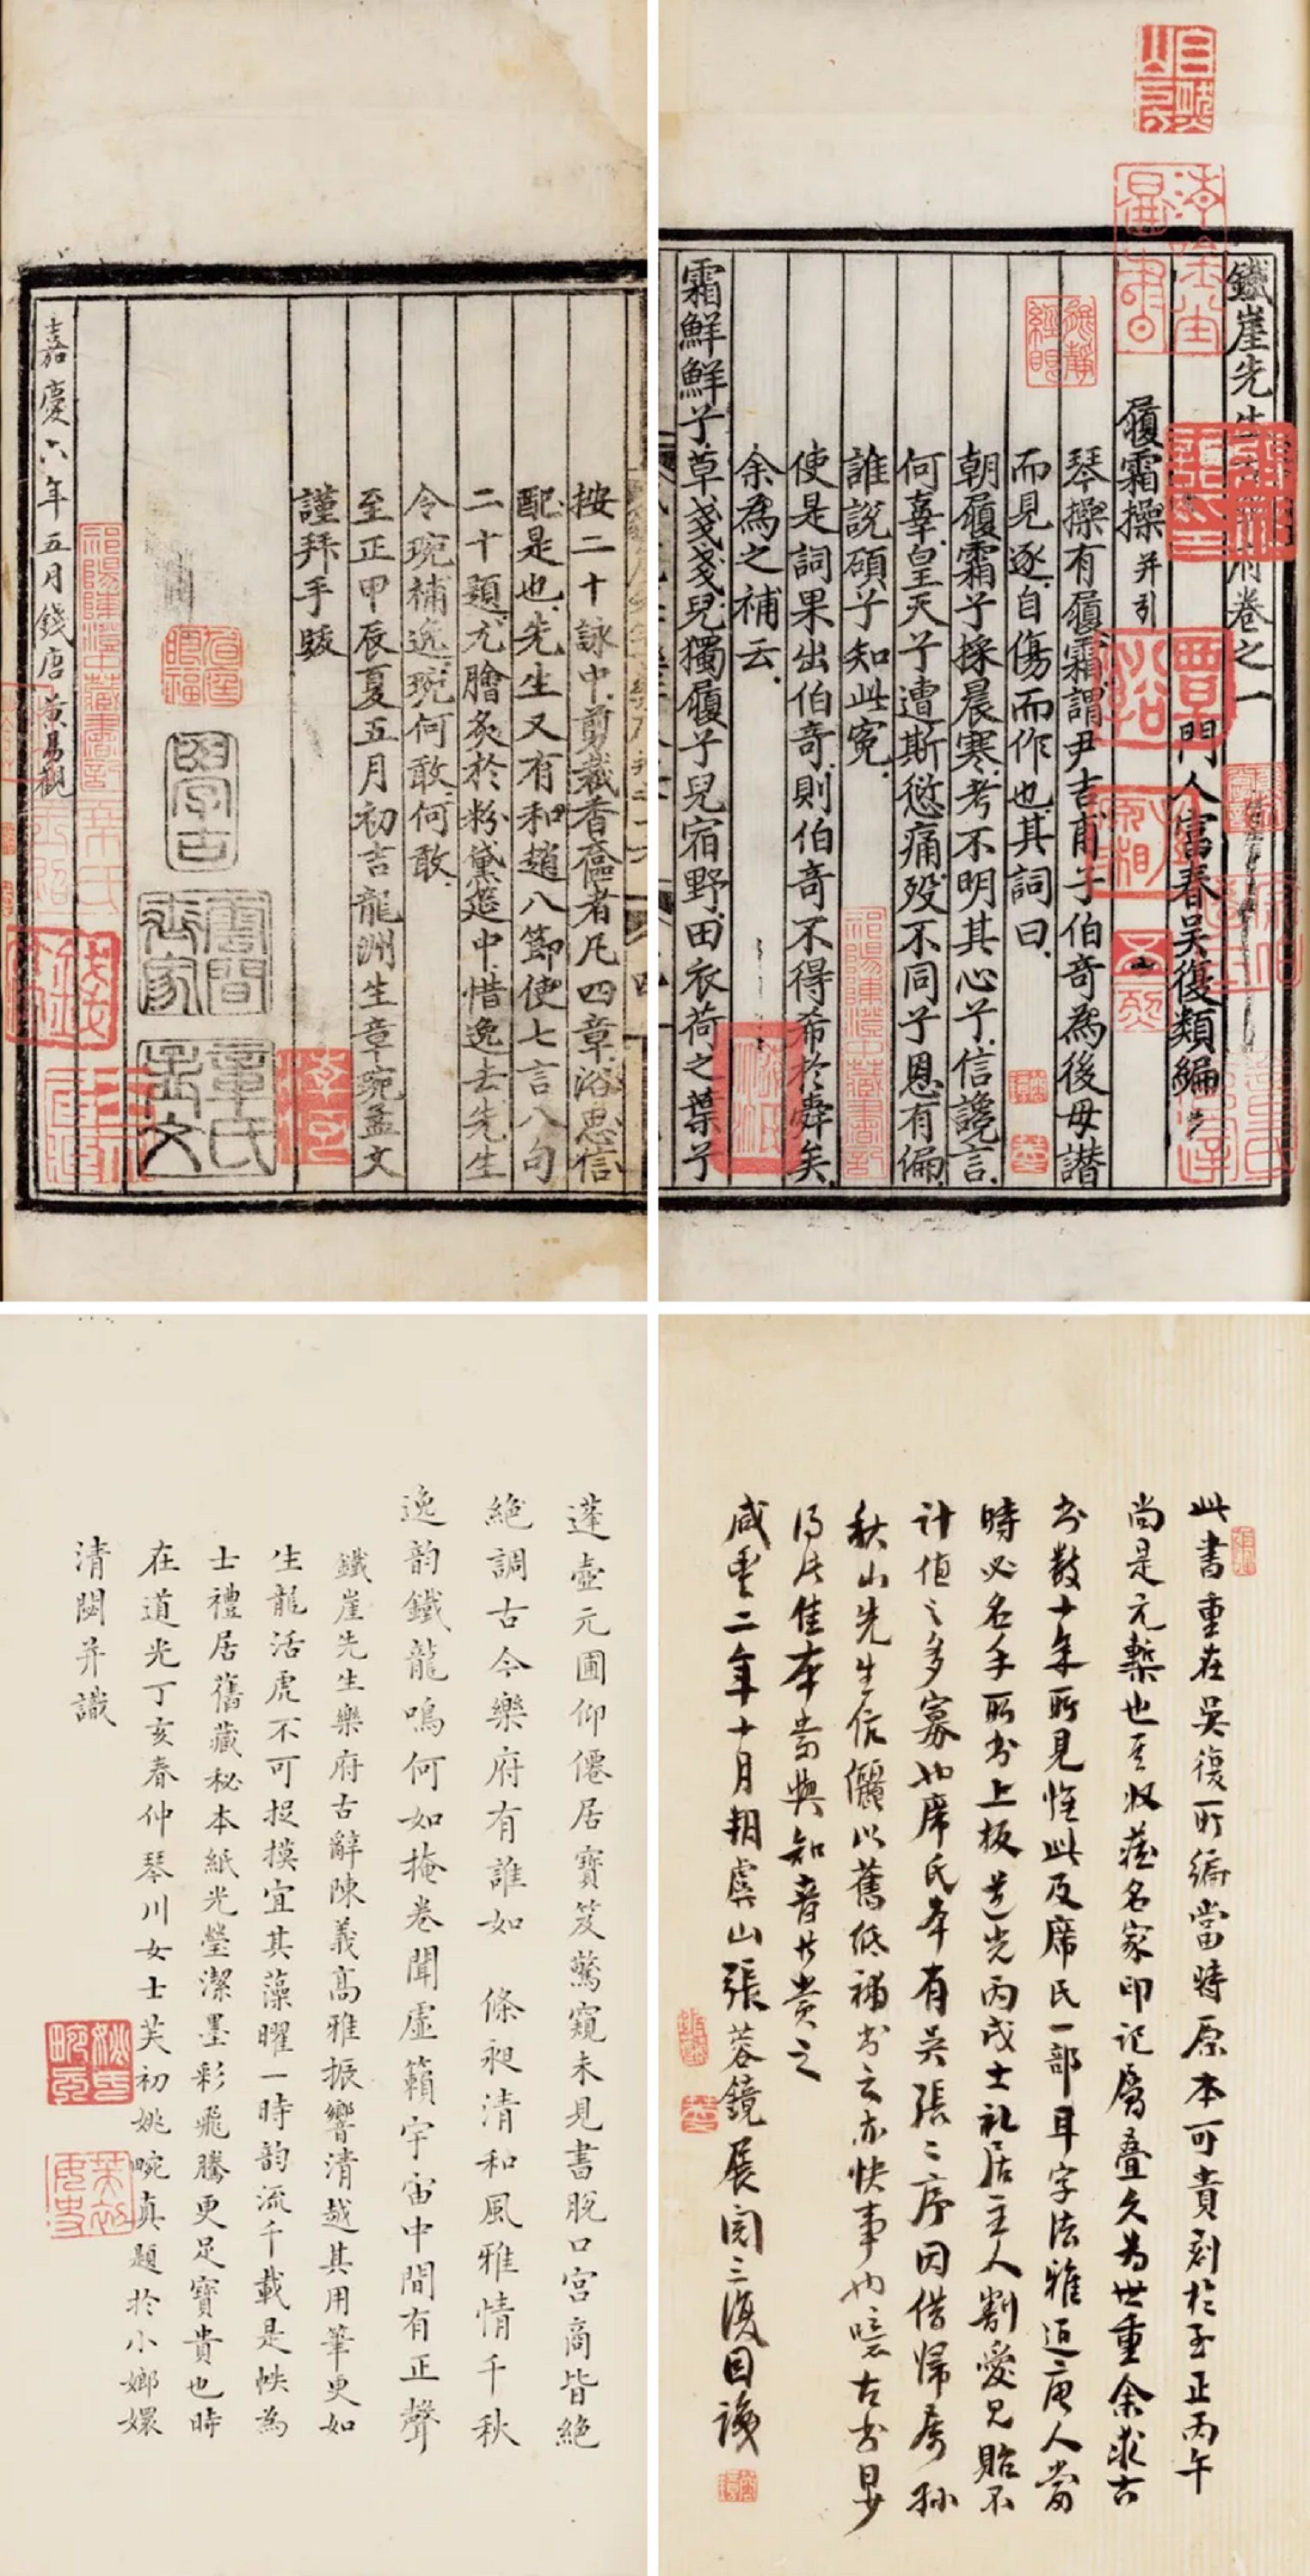 鐵崖先生古樂府卷之一
門人富春吳復類編
履霜操并引
琴操有履霜謂尹吉甫子伯奇為後母譖
而見逐自傷而作也其詞曰
朝履霜兮採晨寒考不明其心兮信讒言
何辜皇天兮遭斯愆痛歿不同兮恩有偏
誰說碩兮知此冤
使是詞果出伯奇則伯奇不得希於舜矣
余為之補云
霜鮮鮮兮草戔戔兒獨履兮兒宿野田衣荷之葉兮
按二十詠中剪裁香奩者凡四章浴思信
配是也先生又有和趙八節使七言八句
二十題尤膾炙於粉黛筵中惜逸去先生
令琬補逸琬何敢何敢
至正甲辰夏五月初吉龍洲生章琬孟文
謹拜手跋
學古
雲間
齊家
章氏
孟文
嘉慶六年五月錢唐黃易觀
祁陽陳澄中藏書記
此書重在吳復所編當時原本可貴刻於至正丙午
尚是元槧也至收藏名家印記層疊久為世重余求古
書數十年所見惟此及席氏一部耳字法雅近唐人當
時必名手所書上板道光丙戌士礼居主人割愛見貽不
計值之多寡也席氏本有吳張二序因借歸屬孫
秋山先生伉儷以舊紙補書之亦快事也噫古書日少
得此佳本當與知音共賞之
咸豐二年十月朔虞山張蓉鏡展閱三復因識
蓬壺元圃仰僊居寶笈驚窺未見書脫口宮商皆絕
絕調古今樂府有誰如 條昶清和風雅情千秋
逸韵鐵龍鳴何如掩卷聞虛籟宇宙中間有正聲
鐵崖先生樂府古辭陳義高雅振響清越其用筆更如
生龍活虎不可捉摸宜其藻曜一時韵流千載是帙為
士禮居舊藏秘本紙光瑩潔墨彩飛騰更足寶貴也時
在道光丁亥春仲琴川女士芙初姚畹真題於小嫏嬛
清閟并識